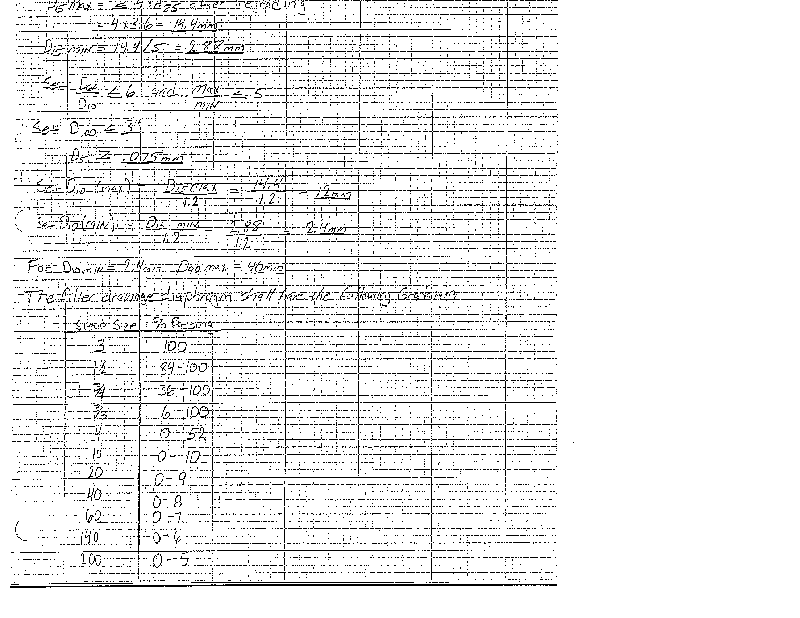 = 4 x 3.6 = 14.4 mm
D15 min = 14.4 / 5 = 2.88 mm
D60/D10 ≤ 6 and max/min ≤ 5
D100 ≤ 3"
D5 ≥ .075 mm
D10 (max) = D15 max/1.2 = 14.4/1.2 = 12 mm
D10 (min) = D15 min/1.2 = 2.88/1.2 = 2.4 mm
For D10 min = 2.4 mm D90 max = 40 mm
The filter drainage diaphragm shall have the following Gradation
Sieve Size % Passing
3 100
84-100
3/4 36-100
6-100
4 0-52
0-10
20 0-9
40 0-8
60 0-7
140 0-6
0-5